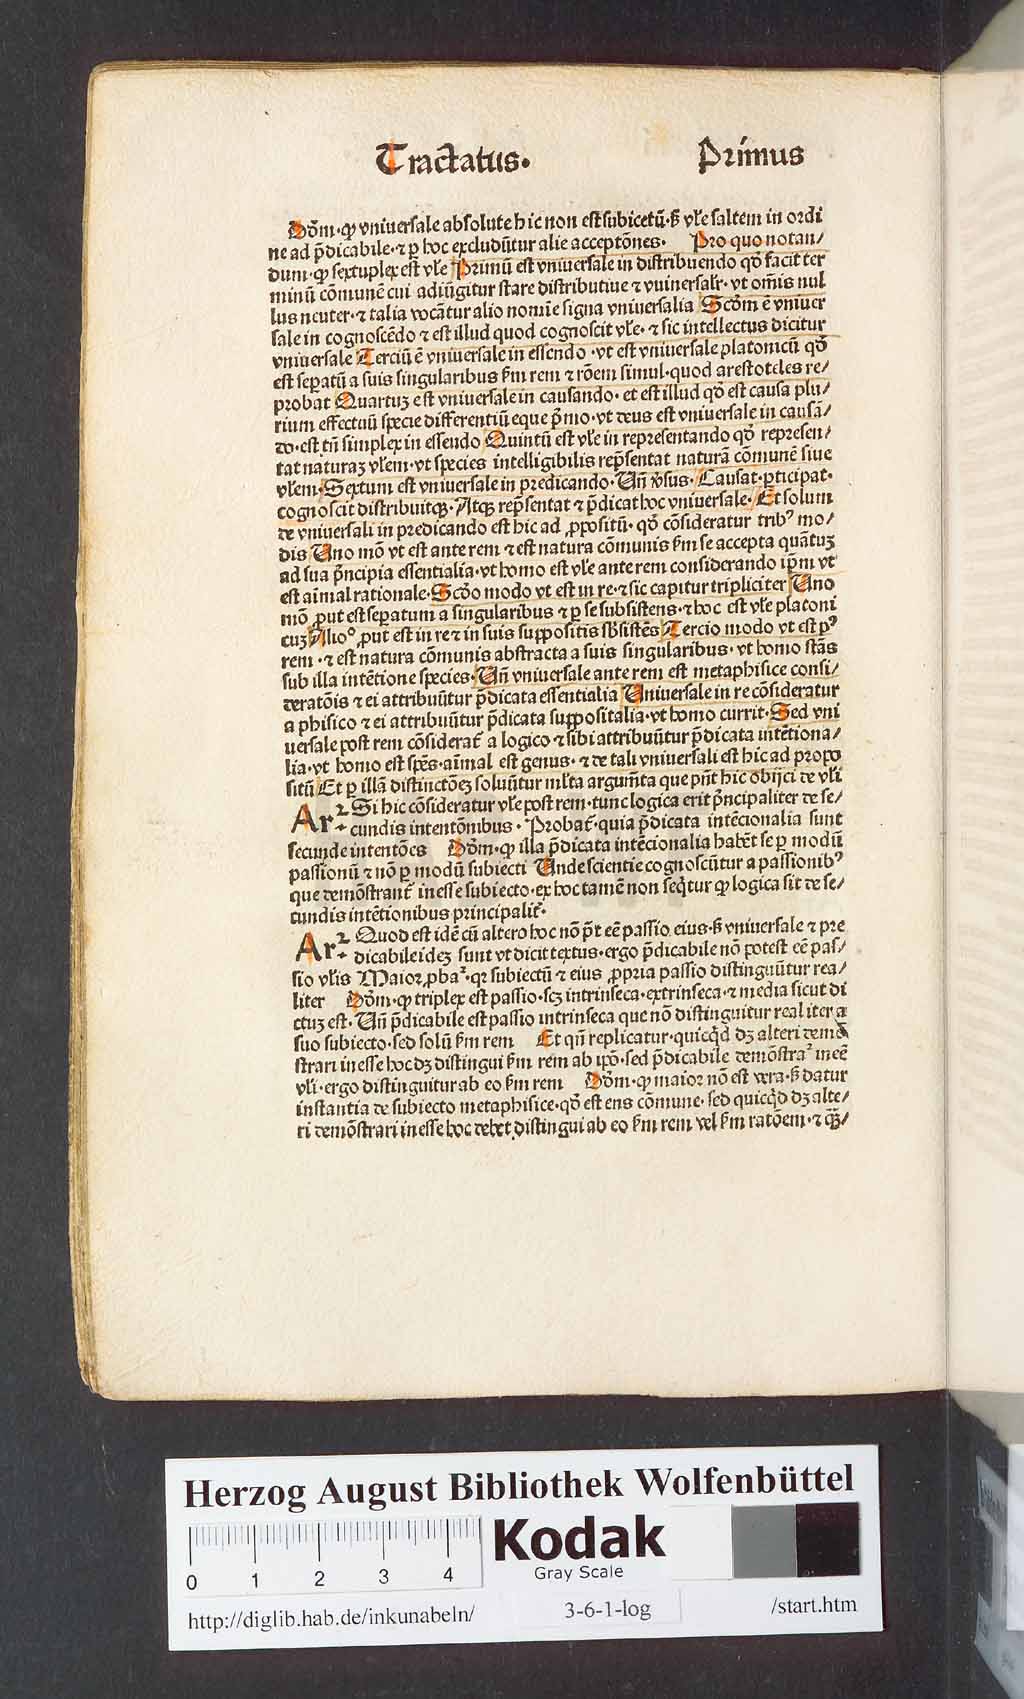 Tractatus. Primus
Dōm·ꝙ vniuersale absolute hic non est subiectū·ẜ vłe saltem in ordi
ne ad p̄dicabile·⁊ ꝑ hoc excludūtur alie acceptōnes· Pro quo notan/
dum·ꝙ sextuplex est vłe Primū est vniuersale in distribuendo qđ facit ter
minū cōmunē cui adiūgitur stare distributiue ⁊ vniuersałr·vt om̄is nul
lus neuter·⁊ talia vocātur alio nomīe signa vniuersalia Scđm ē vniuer
sale in cognoscēdo ⁊ est illud quod cognoscit vłe·⁊ sic intellectus dicitur
vniuersale Terciū ē vniuersale in essendo·vt est vniuersale platonicū qđ
est sepatū a suis singularibus ẜm rem ⁊ rōem simul·quod arestoteles re/
probat Quartuꝫ est vniuersale in causando·et est illud qđ est causa plu/
rium effectuū specie differentiū eque p̄mo·vt deus est vniuersale in causā/
do·est tn̄ simplex in essendo Quintū est vłe in representando qđ represen/
tat naturaꝫ vłem·vt species intelligibilis rep̄sentat naturā cōmunē siue
vłem·Sextum est vniuersale in predicando·Vn̄ v̄sus·Causat·ꝑticipat·
cognoscit distribuitqꝫ·Atqꝫ rep̄sentat ⁊ p̄dicat hoc vniuersale·Et solum
de vniuersali in predicando est hic ad ꝓpositū·qđ cōsideratur tribꝰ mo/
dis Vno mō vt est ante rem ⁊ est natura cōmunis ẜm se accepta quātuꝫ
ad sua p̄ncipia essentialia·vt homo est vłe ante rem considerando ip̄m vt
est aīmal rationale·Scđo modo vt est in re·⁊ sic capitur tripliciter Vno
mō ꝓut est sepatum a singularibus ⁊ ꝑ se subsistens·⁊ hoc est vłe platoni
cuꝫ Alioº ꝓut est in re ⁊ in suis suppositis sb̄sistēs Tercio modo vt est pꝰ
rem·⁊ est natura cōmunis abstracta a suis singularibus·vt homo stās
sub illa intētione species·Vn̄ vniuersale ante rem est metaphisice consi/
deratōis ⁊ ei attribuūtur p̄dicata essentialia Vniuersale in re cōsideratur
a phisico ⁊ ei attribuūtur p̄dicata suppositalia·vt homo currit·Sed vni
uersale post rem cōsiderat̄ a logico ⁊ sibi attribuūtur p̄dicata intētiona/
lia·vt homo est spēs·aīmal est genus·⁊ de tali vniuersali est hic ad propo
sitū Et ꝑ illā distinctōeꝫ soluūtur mľta argum̄ta que pn̄t hic obijci de vłi
Ar⁊· Si hic cōsideratur vłe post rem·tunc logica erit p̄ncipaliter de se/
cundis intentōnibus·Probat̄·quia p̄dicata intēcionalia sunt
secunde intentōes Dōm·ꝙ illa p̄dicata intēcionalia habēt se ꝑ modū
passionū ⁊ nō ꝑ modū subiecti Vnde scientie cognoscūtur a passionibꝰ
que demōstrant̄ inesse subiecto·ex hoc tamē non seq̄tur ꝙ logica sit de se/
cundis intētionibus principalit̄·
Ar⁊· Quod est idē cū altero hoc nō p̄t eē passio eius·ẜ vniuersale ⁊ pre
dicabile ideꝫ sunt vt dicit textus·ergo p̄dicabile nō potest eē pas/
sio vłis Maior ꝓba⁊·qꝛ subiectū ⁊ eius ꝓpria passio distinguūtur rea/
liter Dōm·ꝙ triplex est passio·scꝫ intrinseca·extrinseca·⁊ media sicut di
ctuꝫ est·Vn̄ p̄dicabile est passio intrinseca que nō distinguitur realiter a
suo subiecto·sed solū ẜm rem Et qn̄ replicatur·quicq̄d dꝫ alteri demō
strari inesse hoc dꝫ distingui ẜm rem ab ip̄o·sed p̄dicabile demōstra⁊ ineē
vłi·ergo distinguitur ab eo ẜm rem Dōm·ꝙ maior nō est vera·ẜ datur
instantia de subiecto metaphisice·qđ est ens cōmune·sed quicq̄d dꝫ alte/
ri demōstrari inesse hoc debet distingui ab eo ẜm rem vel ẜm ratōem·⁊
Herzog August Bibliothek Wolfenbüttel
0 1 2 3 4
Kodak
Gray Scale
http://diglib.hab.de/inkunabeln/ 3-6-1-log /start.htm